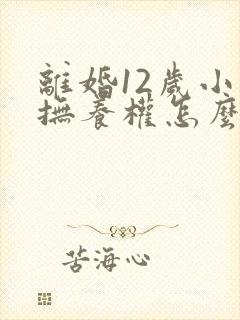 離婚12歲小
撫養權怎麼
苦海心